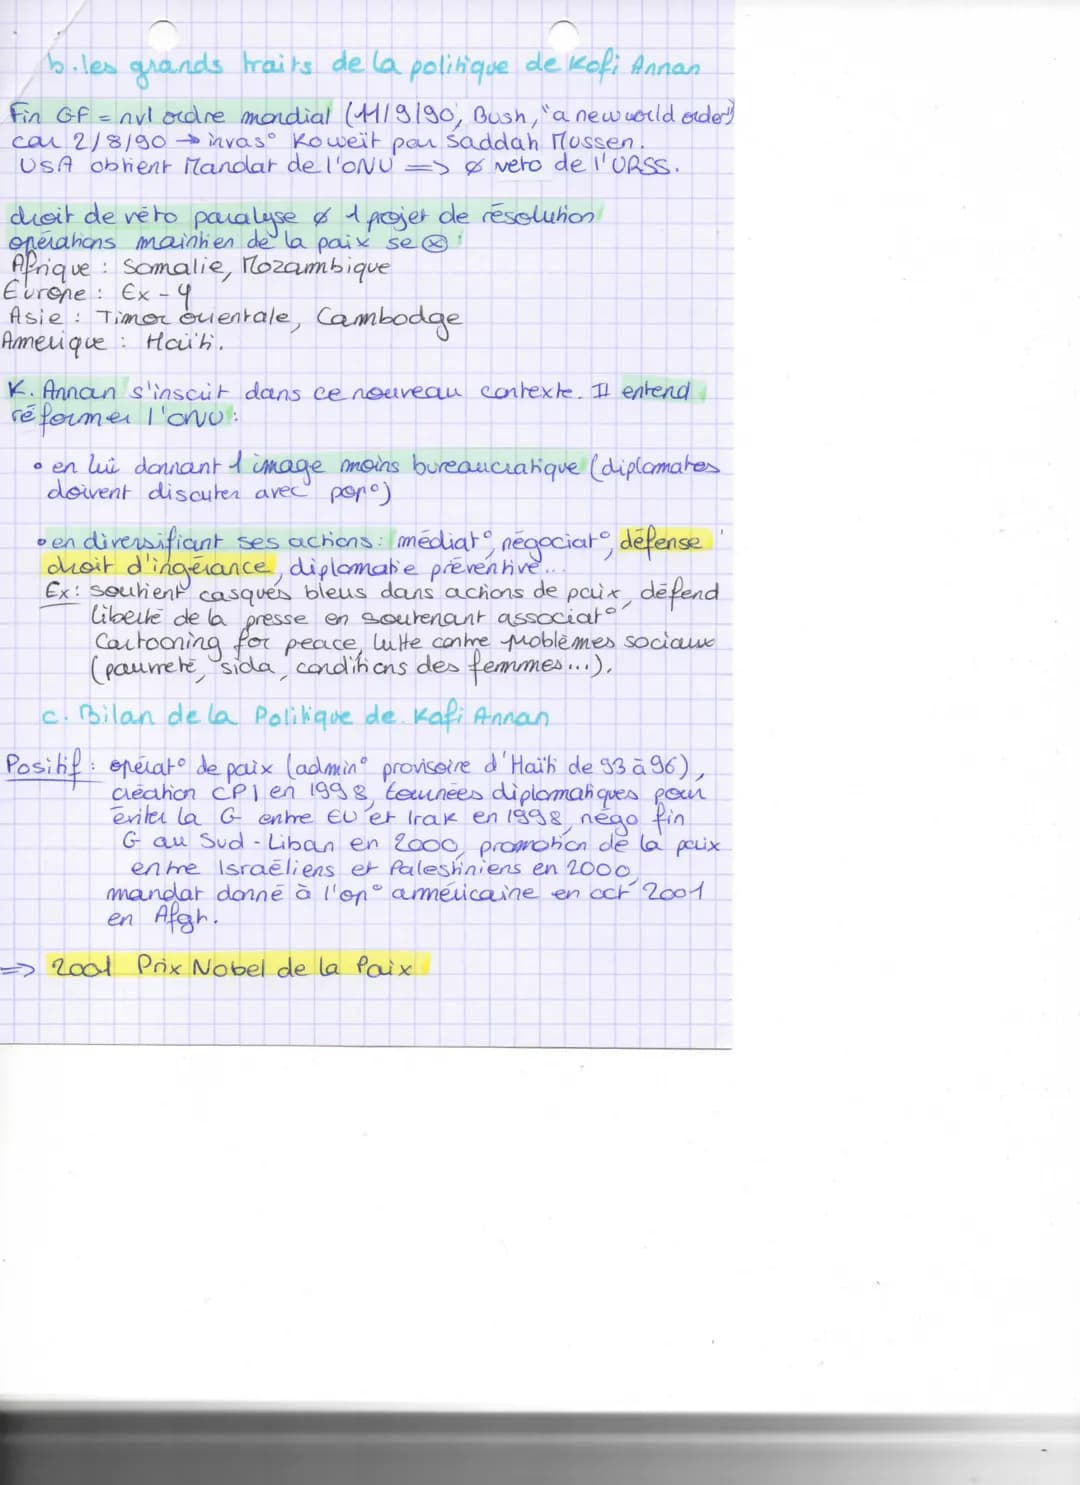 b. les grands traits de la politique de Kofi Annan
Fin GF = nvl ordre mondial (11/9/90, Bush, "a new world order")
car 2/8/90 → invas° Koweït par Saddah Mussen.
USA obtient Mandat de l'ONU => ø veto de l'URSS.
droit de véto paralyse ø 1 projet de résolution
opérations maintien de la paix se ⊗ :
Afrique : Somalie, Mozambique
Europe : Ex - Y
Asie : Timor orientale, Cambodge
Amérique : Haïti.
K. Annan s'inscrit dans ce nouveau contexte. Il entend
réformer l'ONU :
• en lui donnant 1 image moins bureaucratique (diplomates
doivent discuter avec pop°)
• en diversifiant ses actions : médiat°, négociat°, défense
droit d'ingérance, diplomatie préventive...
Ex : soutient casques bleus dans actions de paix, défend
liberté de la presse en soutenant associat°
Cartooning for peace, lutte contre problèmes sociaux
(pauvreté, sida, conditions des femmes...).
c. Bilan de la Politique de Kofi Annan
Positif : opérat° de paix (admin° provisoire d'Haïti de 93 à 96),
création CPI en 1998, tournées diplomatiques pour
éviter la G entre EU et Irak en 1998, négo fin
G au Sud - Liban en 2000, promotion de la paix
entre Israéliens et Palestiniens en 2000,
mandat donné à l'op° américaine en oct 2001
en Afgh.
=> 2001 Prix Nobel de la Paix